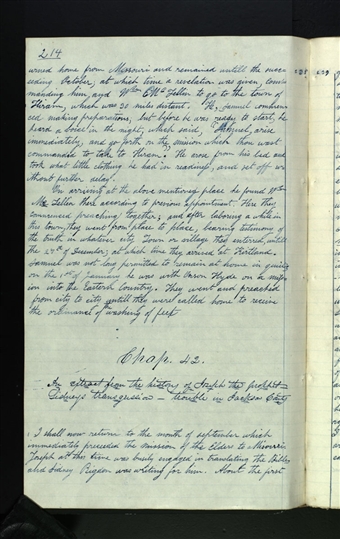 214
urned home from Missouri and remained untill the succe
eding October, at which time a revelation was given, com
manding him, and Wm E Mc Lellin to go to the town of
Hiram, which was 30 miles distant. H. Samuel commenc
ed making preparations, but before he was ready to start, he
heard a voice in the night, which said, "Samuel, arise
immediately, and go forth on the mission which thou wast
commanded to take to Hiram." He arose from his bed and
took what little clothing he had in readiness, and set off wi
thout further delay.
On arriving at the above mentioned place he found Wm
Mc Lellin there according to previous appointment. Here they
commenced preaching together, and after laboring a while in
this town, they went from place to place, bearing testimony of
the truth in whatever city Town or village they entered, untill
the 27th of December, at which time they arrived at Kirtland.
Samuel was not long permitted to remain at home in quiet,
on the 1st of January he was with Orson Hyde on a miss
ion into the Eastern Country. They went and preached
from city to city untill they were called home to receive
the ordinance of washing of feet
Chap. 42.
An extract from the history of Joseph the prophet—
Sidney's transgression — trouble in Jackson County
I shall now return to the month of september which
immediately preceded the mission of the Elders to Missouri
Joseph at this time was busily engaged in translating the Bible,
and Sidney Rigdon was writing for him. About the first